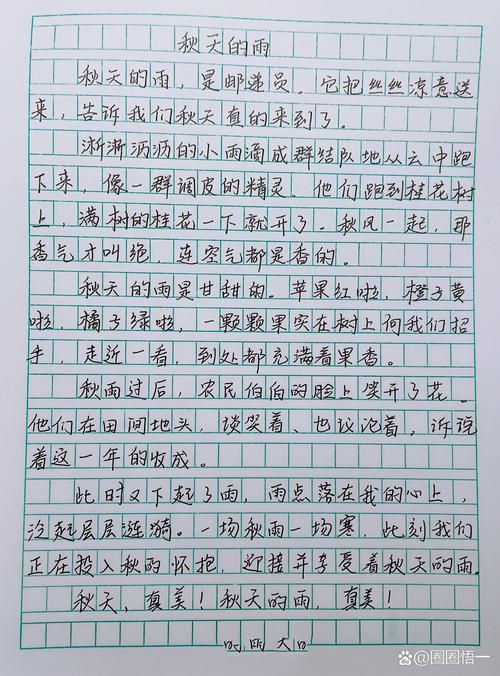 秋天的雨
秋天的雨，是邮递员。它把丝丝凉意送
来，告诉我们秋天真的来到了。
淅淅沥沥的小雨滴成群结队地从云中跑
下来，像一群调皮的精灵。他们跑到桂花树
上，满树的桂花一下就开了。秋风一起，那
香气才叫绝，连空气都是香的。
秋天的雨是甘甜的。苹果红啦，橙子黄
啦，橘子绿啦，一颗颗果实在树上向我们招
手，走近一看，到处都充满着果香。
秋雨过后，农民伯伯的脸上笑开了花。
他们在田间地头，谈笑着、也议论着，诉说
着这一年的收成。
此时又下起了雨，雨点落在我的心上，
泛起层层涟漪。一场秋雨一场寒，此刻我们
正在投入秋的怀抱，迎接并享受着秋天的雨。
秋天，真美！秋天的雨，真美！
@圈圈悟一